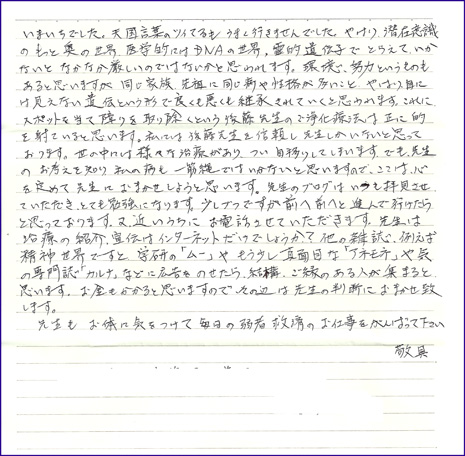 いまいちでした。天国言葉のツイてるもうまく行きませんでした。やはり潜在意識
のもっと奥の世界、医学的にはDNAの世界、霊的遺伝子でとらえていか
ないとなかなか厳しいのではないかと思われます。環境、努力というものも
あると思いますが、同じ家族、先祖に同じ病や性格が多いこと、やはり目に
は見えない遺伝という形で良くも悪くも継承されていくと思われます。これに
スポットを当て障りを取り除くという後藤先生のご浄化療法は正に的
を射ていると思います。私には後藤先生を信頼し先生しかいないと思って
おります。世の中には様々な治療があり、つい目移りしてしまいます。でも先生
のお考えを知り私の病も一筋縄ではいかないと思いますので、ここは心
を定めて先生におまかせしようと思います。先生のブログはいつも拝見させ
ていただき、とても勉強になります。少しづつですが前へ前へと進んで行けたら
と思っております。又、近いうちにお電話させていただきます。先生は
治療の紹介、宣伝はインターネットだけでしょうか？他の雑誌、例えば
精神世界ですと、学研の「ムー」や、もう少し真面目な「アネモネ」や気
の専門誌「カルナ」などに広告をのせたら、結構、ご縁のある人が集まると
思います。お金もかかると思いますのでその辺は先生の判断におまかせ致
します。
先生もお体に気をつけて毎日の弱者救済のお仕事をがんばって下さい
敬具